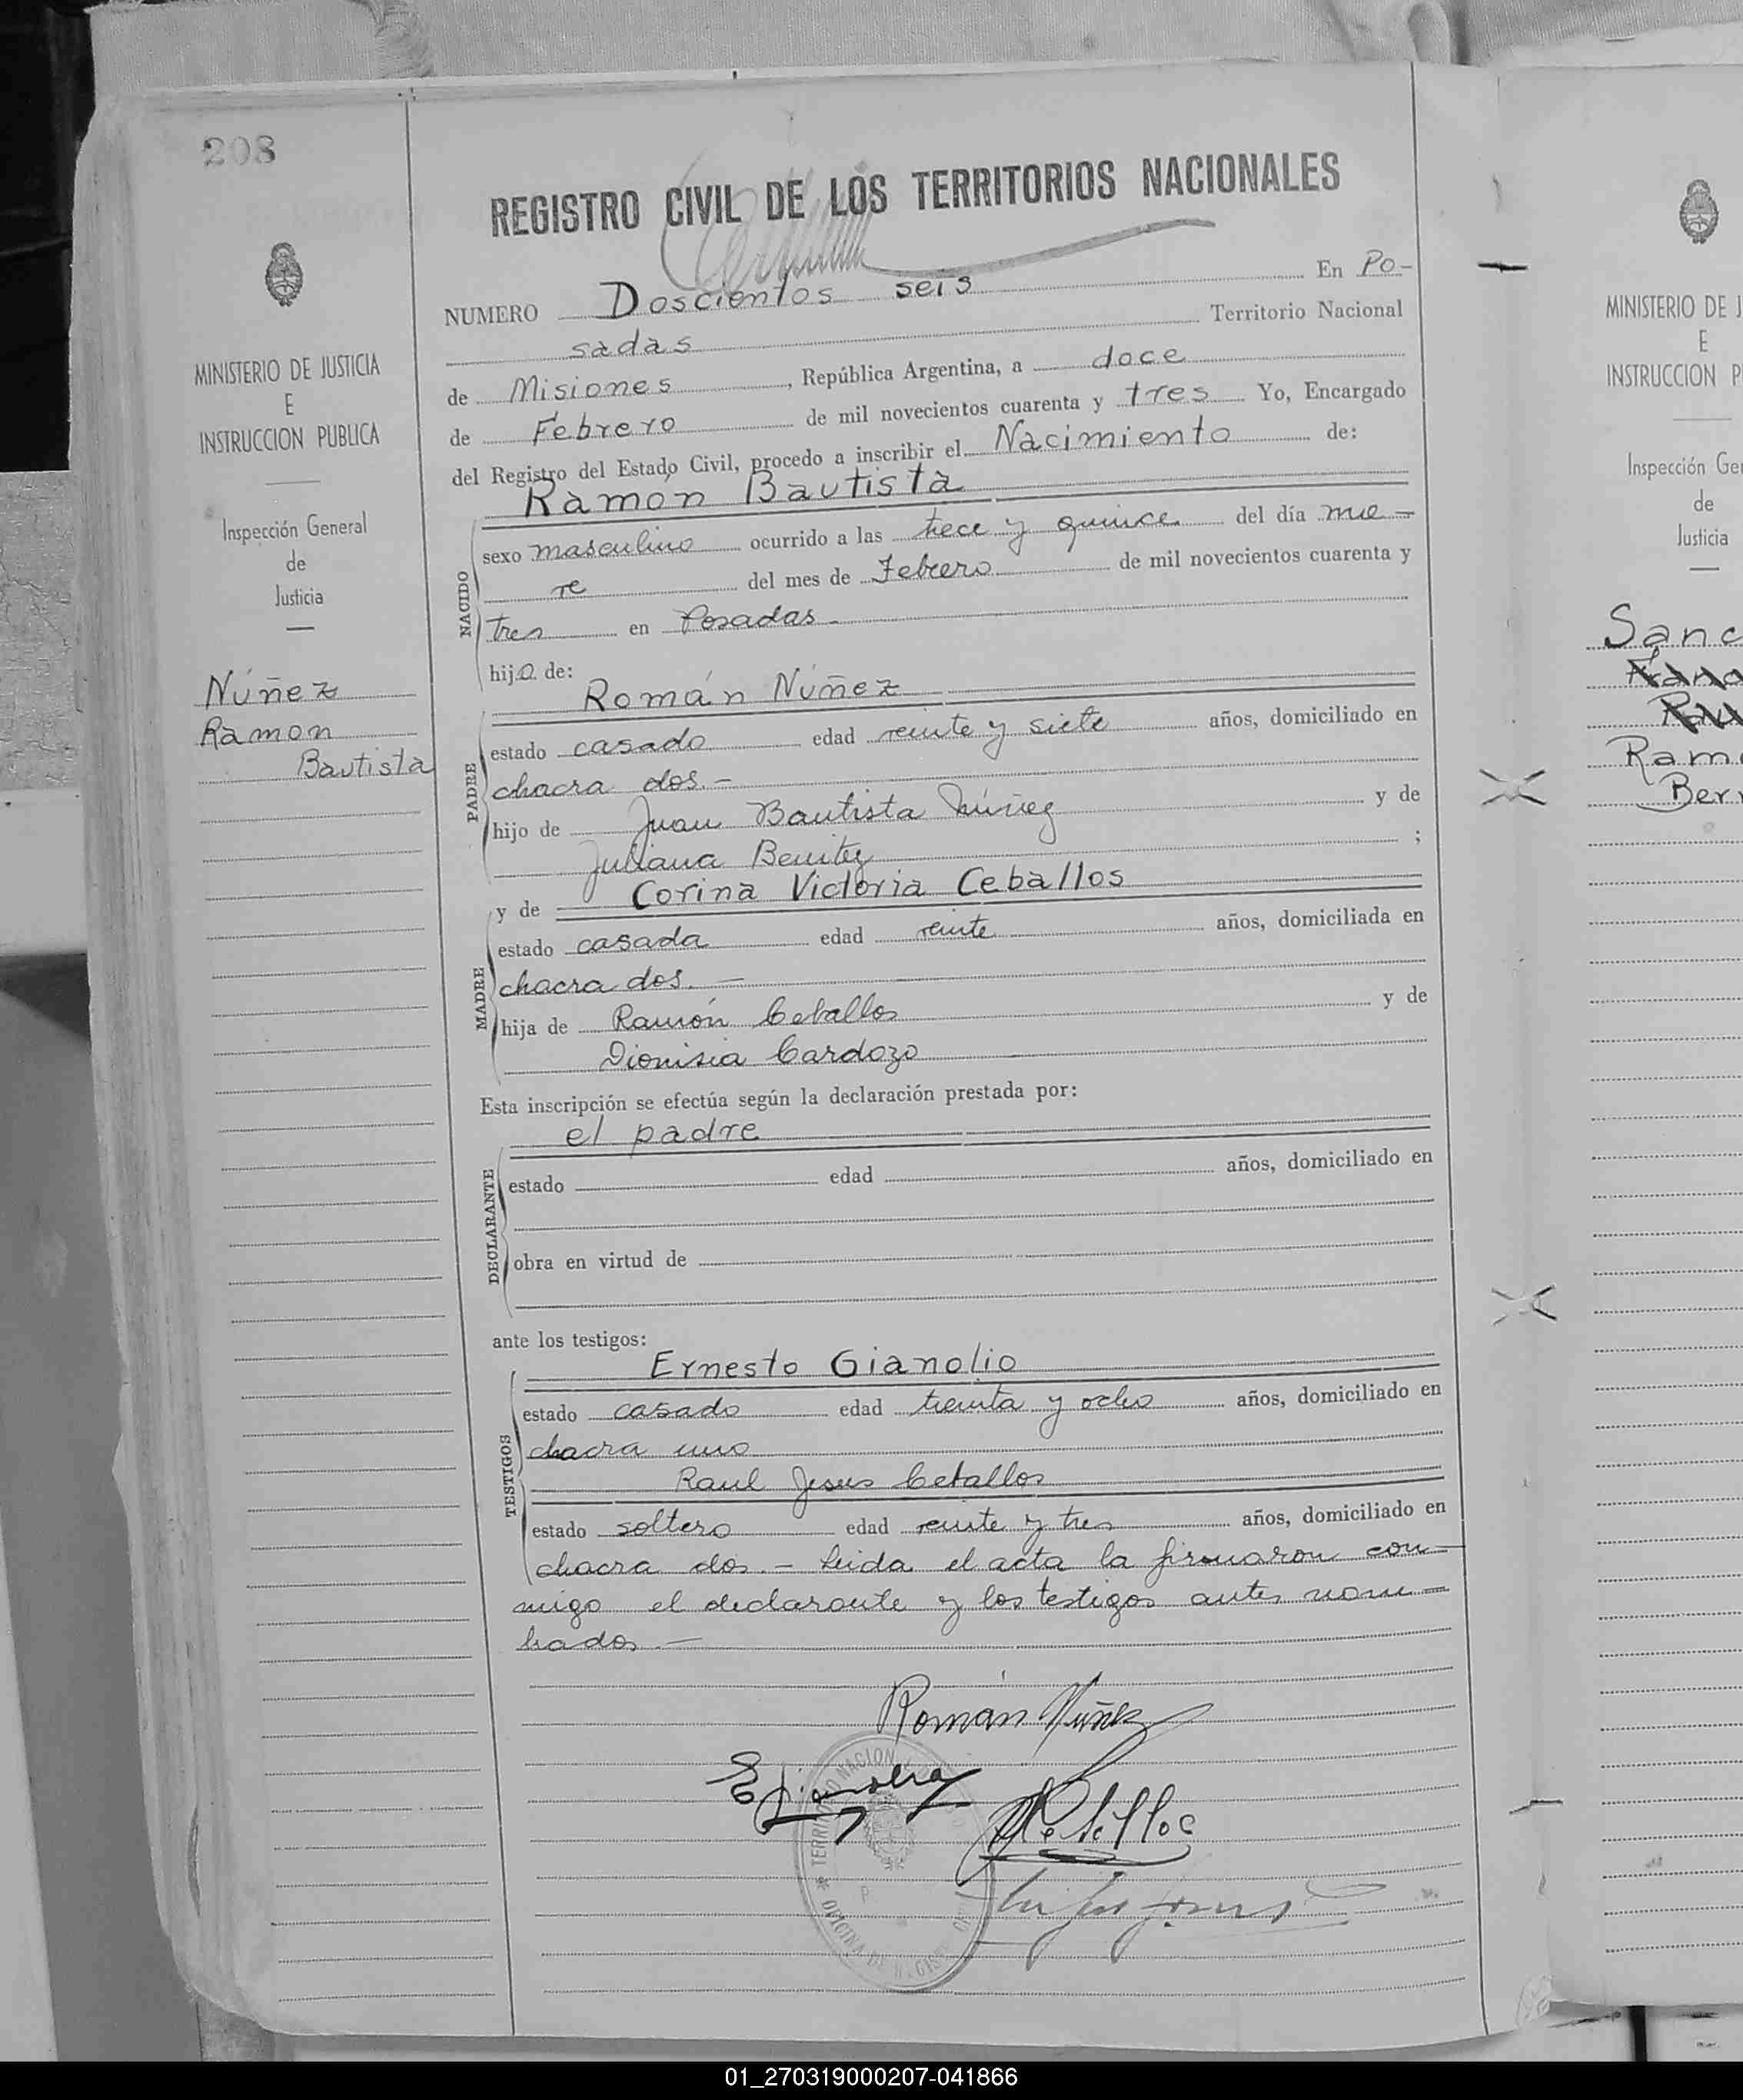 208
REGISTRO CIVIL DE LOS TERRITORIOS NACIONALES
MINISTERIO DE JUSTICIA
E
INSTRUCCION PUBLICA
Inspección General
de
Justicia
Núñez
Ramon
Bautista
NUMERO Doscientos seis En Po-
sadas Territorio Nacional
de Misiones, República Argentina, a doce
de Febrero de mil novecientos cuarenta y tres Yo, Encargado
del Registro del Estado Civil, procedo a inscribir el Nacimiento de:
NACIDO
Ramón Bautista
sexo masculino ocurrido a las trece y quince del día nue-
ve del mes de Febrero de mil novecientos cuarenta y
tres en Posadas.
hijo de:
PADRE
Román Núñez
estado casado edad veinte y siete años, domiciliado en
chacra dos.-
hijo de Juan Bautista Núñez y de
Juliana Benitez ;
MADRE
y de Corina Victoria Ceballos
estado casada edad veinte años, domiciliada en
chacra dos. -
hija de Ramón Ceballos y de
Dionisia Cardozo
Esta inscripción se efectúa según la declaración prestada por:
DECLARANTE
el padre
estado edad años, domiciliado en
obra en virtud de
ante los testigos:
TESTIGOS
Ernesto Gianolio
estado casado edad treinta y ocho años, domiciliado en
chacra uno
Raul Jesus Ceballos
estado soltero edad veinte y tres años, domiciliado en
chacra dos. - Leida el acta la firmaron con-
migo el declarante y los testigos antes nom-
brados. -
Román Núñez
TERRITORIO NACION
OFICINA DE
MINISTERIO DE J
E
INSTRUCCION P
Inspección Ge
de
Justicia
Sanc
Ram
Ber
01_270319000207-041866